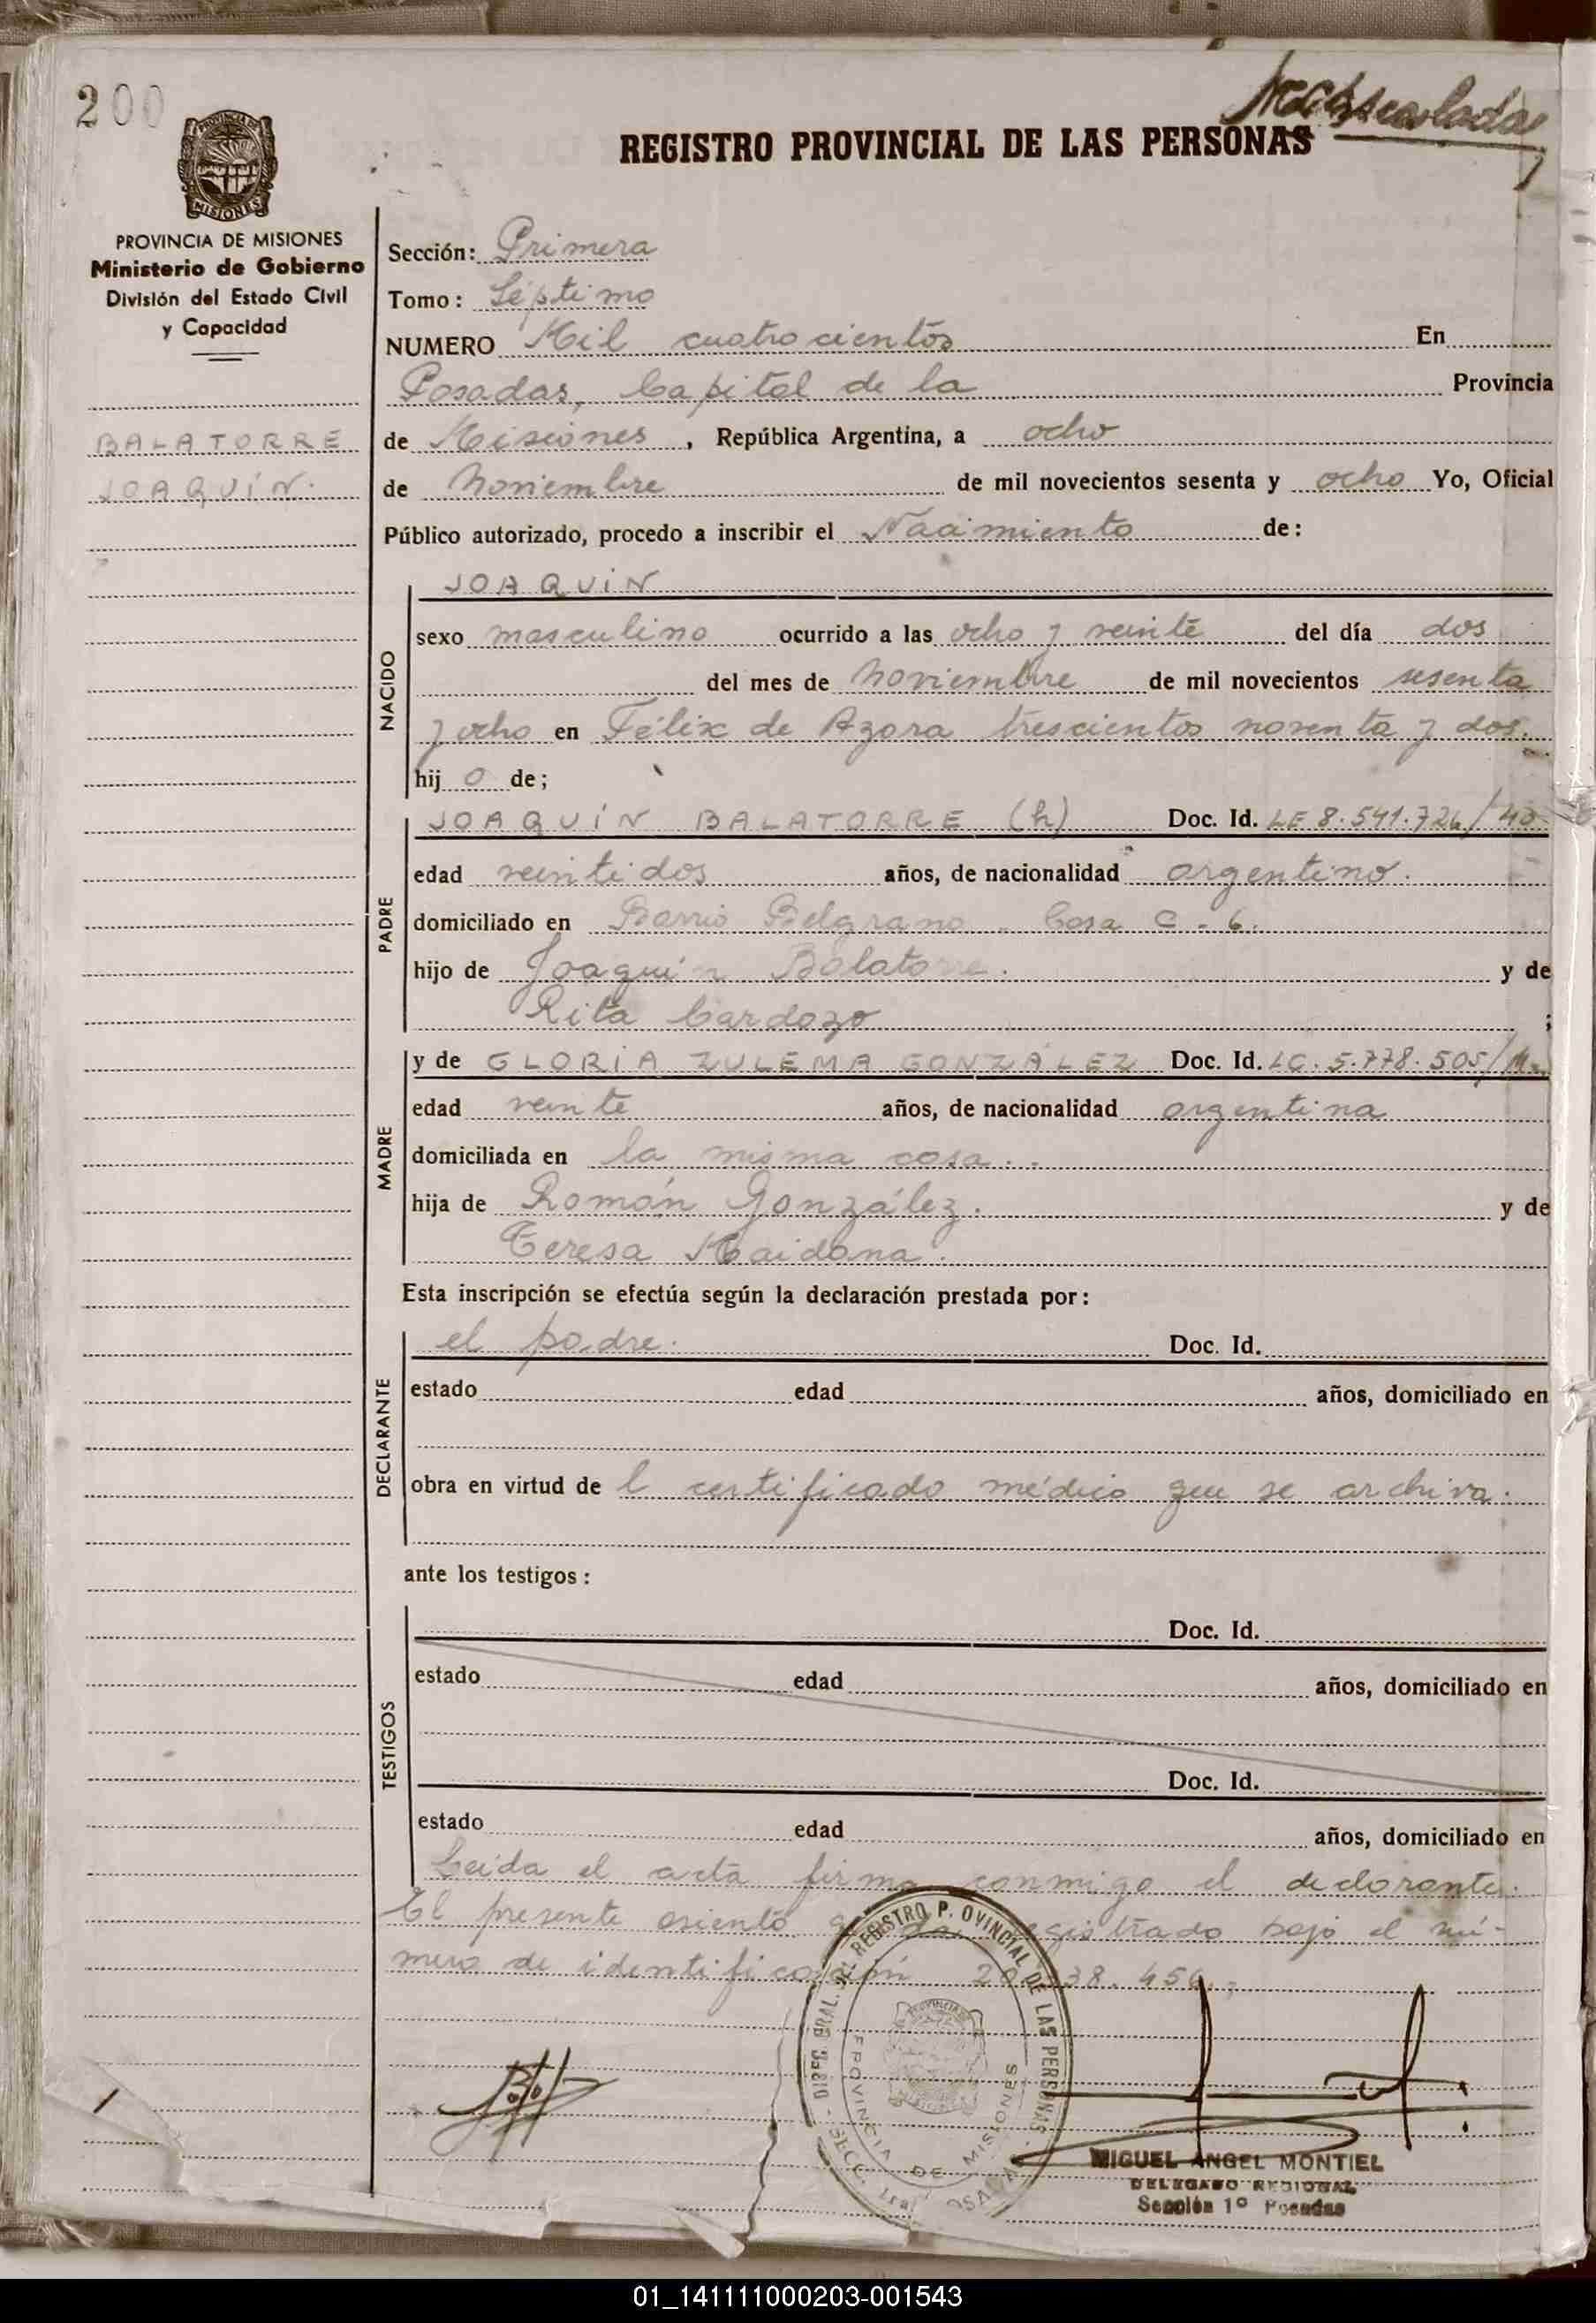 200
REGISTRO PROVINCIAL DE LAS PERSONAS
PROVINCIA DE MISIONES
Ministerio de Gobierno
División del Estado Civil
y Capacidad
BALATORRE
JOAQUÍN.
Sección: Primera
Tomo: Séptimo
NUMERO Mil cuatrocientos En
Posadas, Capital de la Provincia
de Misiones, República Argentina, a ocho
de Noviembre de mil novecientos sesenta y ocho Yo, Oficial
Público autorizado, procedo a inscribir el Nacimiento de:
NACIDO
JOAQUÍN
sexo masculino ocurrido a las ocho y veinte del día dos
del mes de Noviembre de mil novecientos sesenta
y ocho en Félix de Azara trescientos noventa y dos.
hij o de;
PADRE
JOAQUÍN BALATORRE (h) Doc. Id. LE 8.541.726/
edad veintidos años, de nacionalidad argentino.
domiciliado en Barrio Belgrano - Casa C - 6.
hijo de Joaquín Balatorre. y de
Rita Cardozo ;
MADRE
y de GLORIA ZULEMA GONZÁLEZ Doc. Id. LC. 5.778.505/
edad veinte años, de nacionalidad argentina
domiciliada en la misma casa.
hija de Román González. y de
Teresa Maidana.
Esta inscripción se efectúa según la declaración prestada por:
DECLARANTE
el padre. Doc. Id.
estado edad años, domiciliado en
obra en virtud de l certificado médico que se archiva.
ante los testigos:
TESTIGOS
Doc. Id.
estado edad años, domiciliado en
Doc. Id.
estado edad años, domiciliado en
Leída el acta firma conmigo el declarante.
El presente asiento registrado bajo el nú-
mero de identificación
REGISTRO P. OVINCIAL DE LAS PERSONAS
PROVINCIA DE MISIONES
MIGUEL ANGEL MONTIEL
DELEGADO REGIONAL
Sección 1º Posadas
01_141111000203-001543